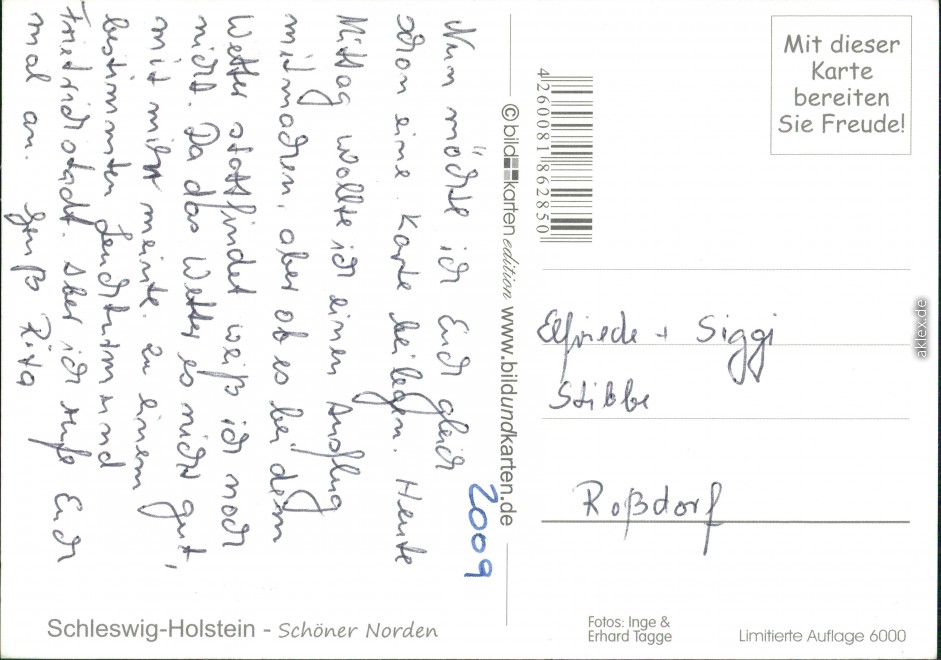 Nun möchte ich Euch gleich
schon eine Karte beilegen. Heute
Mittag wollte ich einen Ausflug
mitmachen, aber ob es bei dem
Wetter stattfindet weiß ich noch
nicht. Da das Wetter es nicht gut,
mit mir meinte. zu einem
bestimmten Leuchtturm und
Friedrichstadt. Aber ich rufe Euch
mal an. Gruß Rita
2009
© bild karten edition www.bildundkarten.de
4 260081 862850
Mit dieser
Karte
bereiten
Sie Freude!
Elfriede + Siggi
Stibbe
Roßdorf
Schleswig-Holstein - Schöner Norden
Fotos: Inge &
Erhard Tagge
Limitierte Auflage 6000
aklex.de